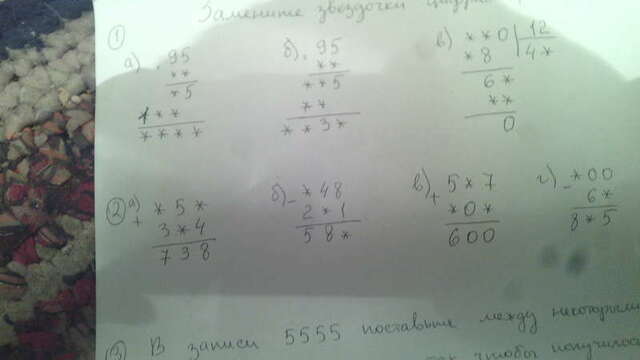 Замените звёздочки
①
а) · 95
**
*5
1**
****
б) · 95
**
**5
**
**3*
в) **0 | 12
*8 | 4*
6*
**
0
② а) + *5*
3*4
738
б) - *48
2*1
58*
в) + 5*7
*0*
600
г) - *00
6*
8*5
③ В записи 5555 поставьте между некоторыми
так чтобы